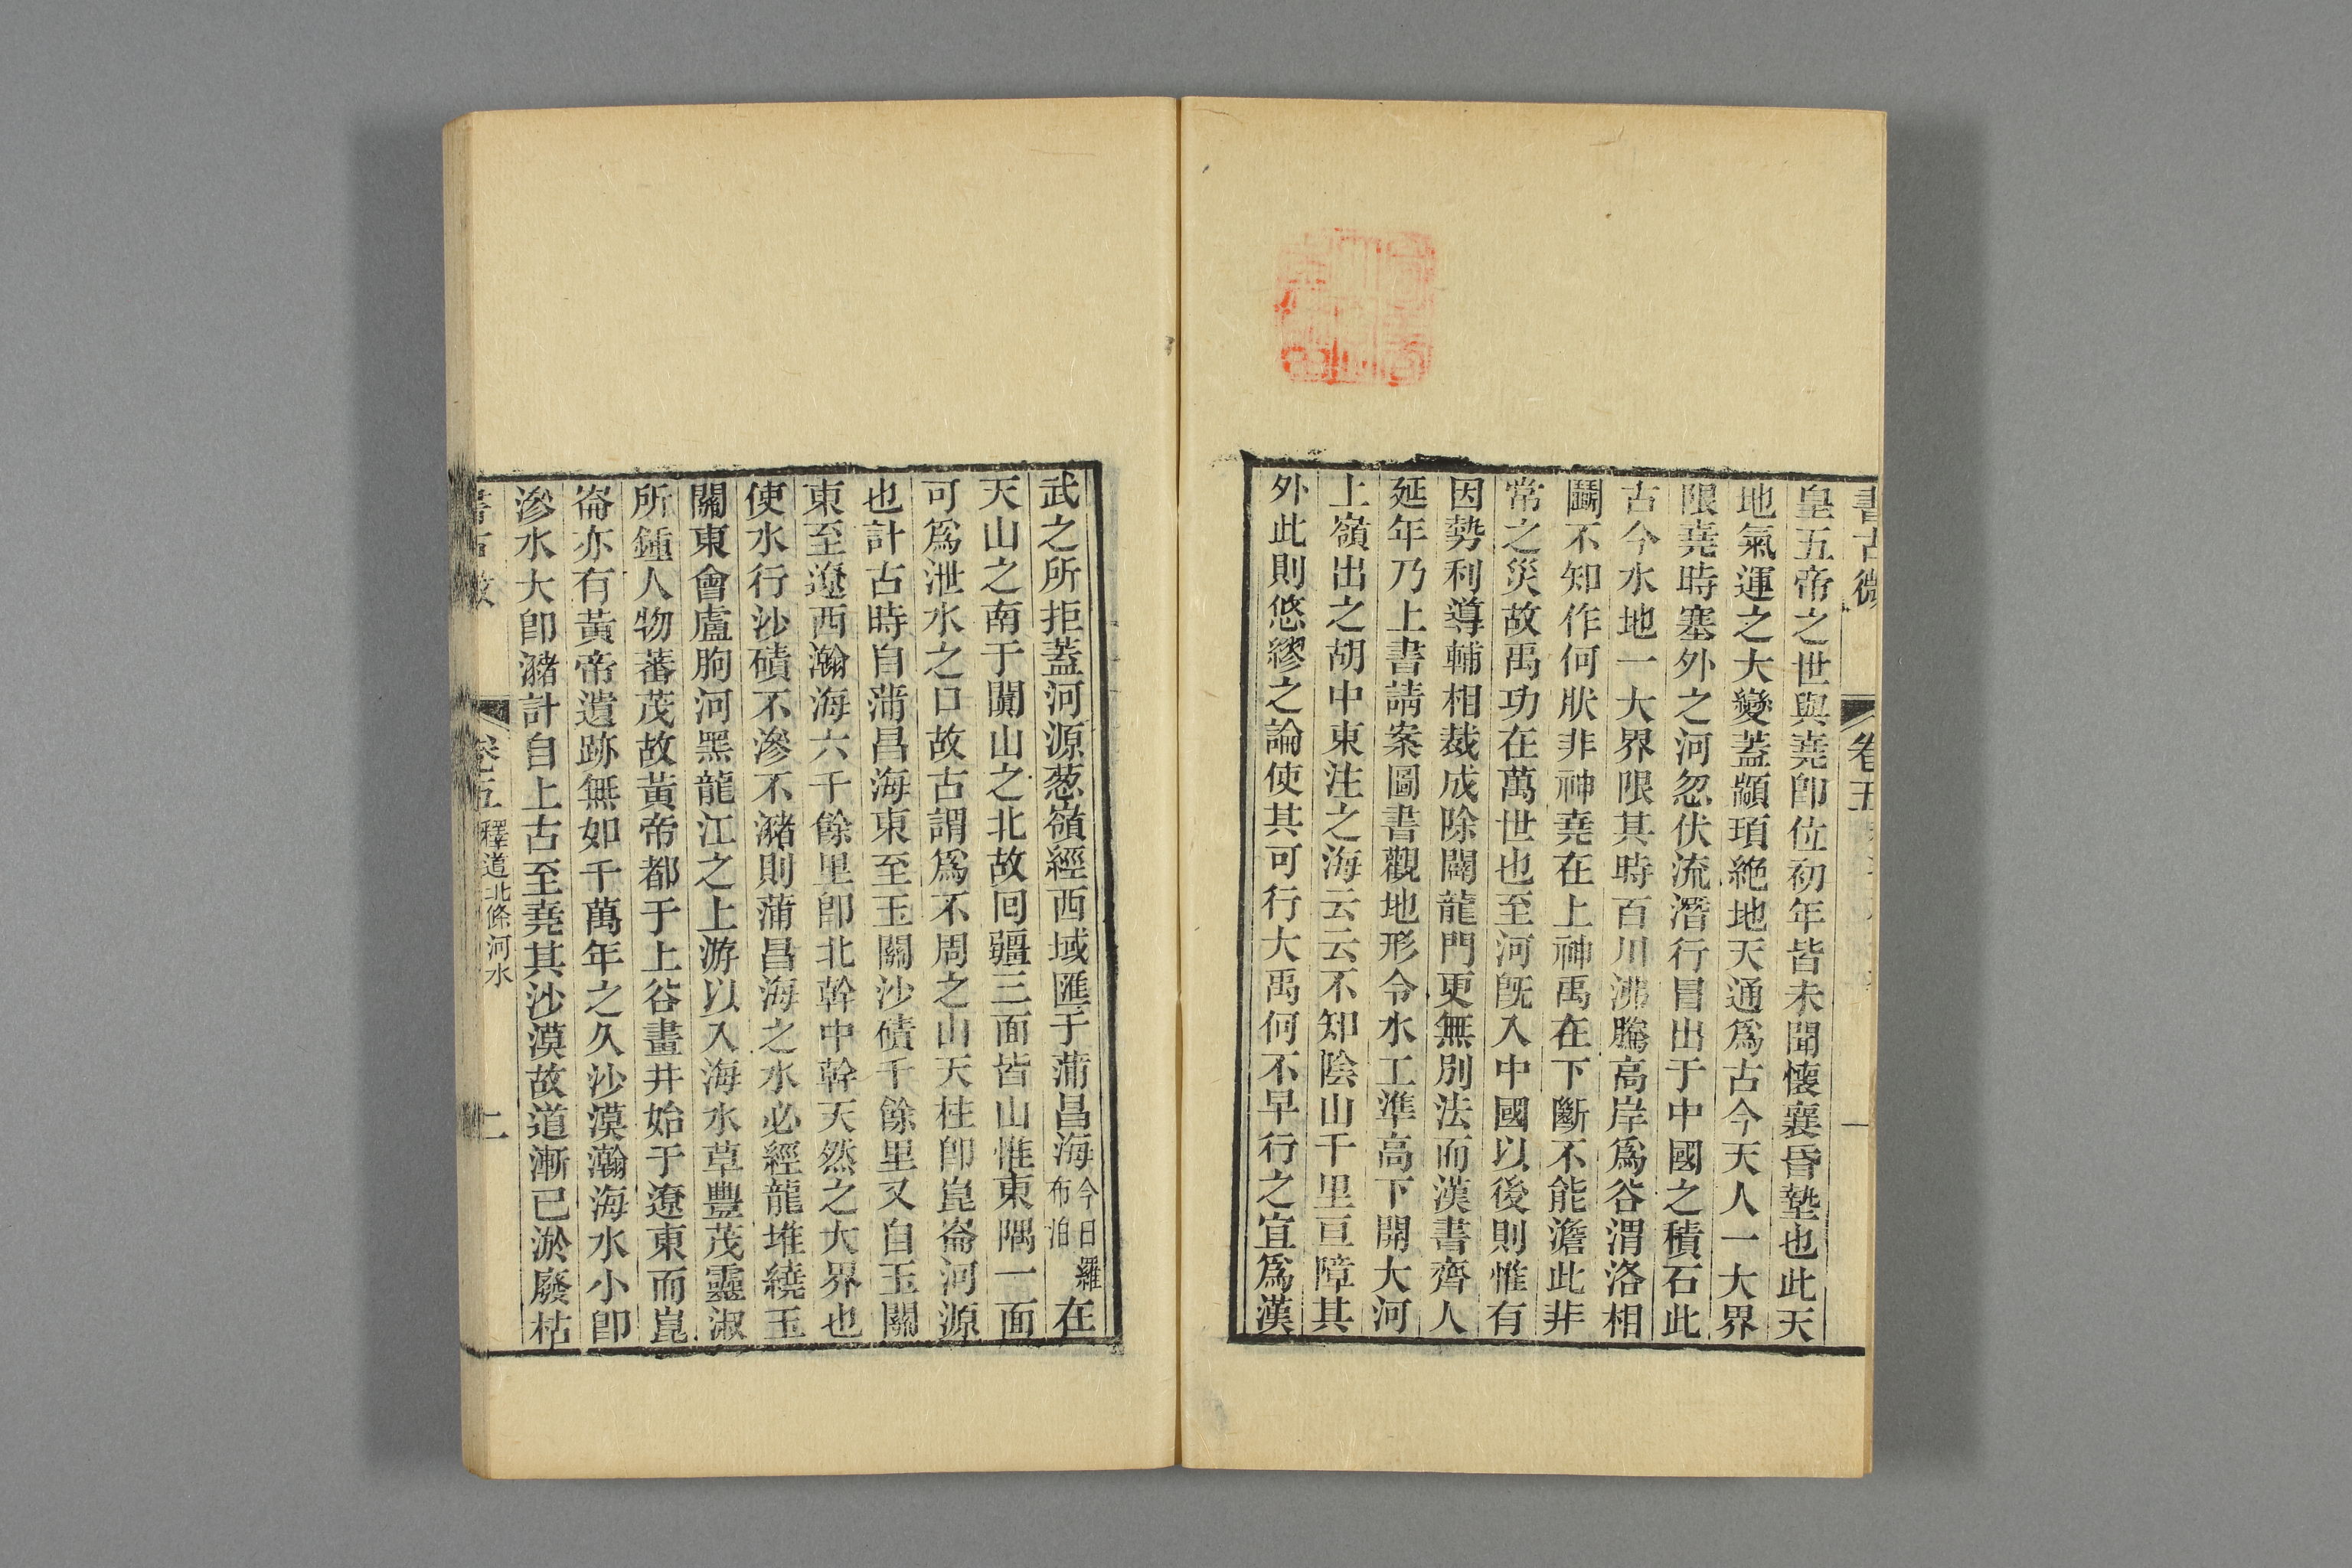 書古微
卷五
一
皇五帝之世與堯卽位初年皆未聞懷襄昏墊也此天
地氣運之大變蓋顓頊絶地天通爲古今天人一大界
限堯時塞外之河忽伏流潛行冒出于中國之積石此
古今水地一大界限其時百川沸騰高岸爲谷渭洛相
鬭不知作何狀非神堯在上神禹在下斷不能澹此非
常之災故禹功在萬世也至河旣入中國以後則惟有
因勢利導輔相裁成除闢龍門更無別法而漢書齊人
延年乃上書請案圖書觀地形令水工準高下開大河
上嶺出之胡中東注之海云云不知陰山千里亘障其
外此則悠繆之論使其可行大禹何不早行之宜爲漢
武之所拒蓋河源葱嶺經西域匯于蒲昌海今日羅布泊在
天山之南于闐山之北故回疆三面皆山惟東隅一面
可爲泄水之口故古謂爲不周之山天柱卽崑崙河源
也計古時自蒲昌海東至玉關沙磧千餘里又自玉關
東至遼西瀚海六千餘里卽北幹中幹天然之大界也
使水行沙磧不滲不瀦則蒲昌海之水必經龍堆繞玉
關東會盧朐河黑龍江之上游以入海水草豐茂靈淑
所鍾人物蕃茂故黃帝都于上谷畫井始于遼東而崑
崙亦有黃帝遺跡無如千萬年之久沙漠瀚海水小卽
滲水大卽瀦計自上古至堯其沙漠故道漸已淤廢枯
卷五 釋道北條河水
二